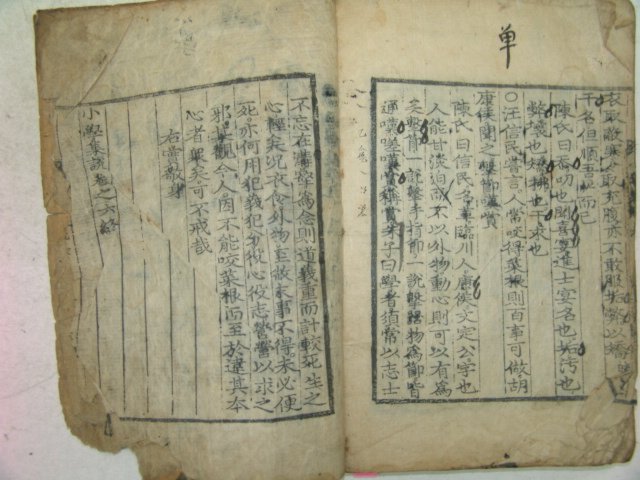 单
衣取蔽寒食取充腹亦不敢服垢弊以矯
干名但順吾性而已
陳氏曰忝叨也聞喜宴進士宴名也垢汚也
弊壞也矯拂也干求也
○汪信民嘗言人常咬得菜根則百事可做胡
康侯聞之擊節嘆賞
陳氏曰信民名革臨川人康侯文定公字也
人能甘淡泊而不以外物動心則可以有爲
矣擊節一說擊手指節一說擊器物爲節皆
通嘆嗟嘆賞稱賞朱子曰學者須常以志士
不忘在溝壑爲念則道義重而計較死生之
心輕矣况衣食外物至微末事不得未必便
死亦何用犯義犯分役心役志營營以求之
邪某觀今人因不能咬菜根而至於違其本
心者衆矣可不戒哉
右實敬身
小學集說卷之六終